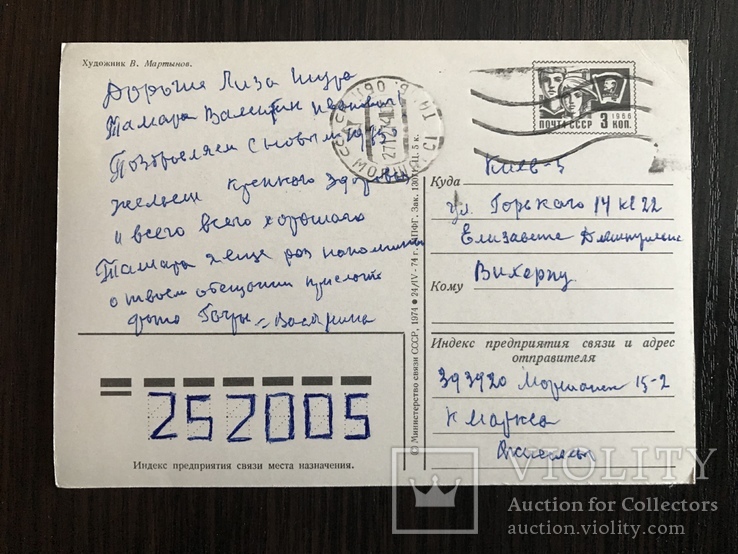 Художник В. Мартынов.
Дорогие Лиза Шура
Тамара Валентин Иванович
Поздравляем с новым 1975
желаем крепкого здоровья
и всего всего хорошего
Тамара я еще раз напоминаю
о твоем обещании прислать
фото
252005
Индекс предприятия связи места назначения.
© Министерство связи СССР, 1974 • 24/IV - 74 г.
ППФГ. Зак. 1301. Ц. 5 к.
ПОЧТА СССР 3 КОП.
1966
27
Куда Киев-5
ул Горького 14 кв 22
Елизавете
Кому Вихерту
Индекс предприятия связи и адрес
отправителя
393920 Моршанск 15-2
К Маркса
VIOLITY
Auction for Collectors
auction.violity.com